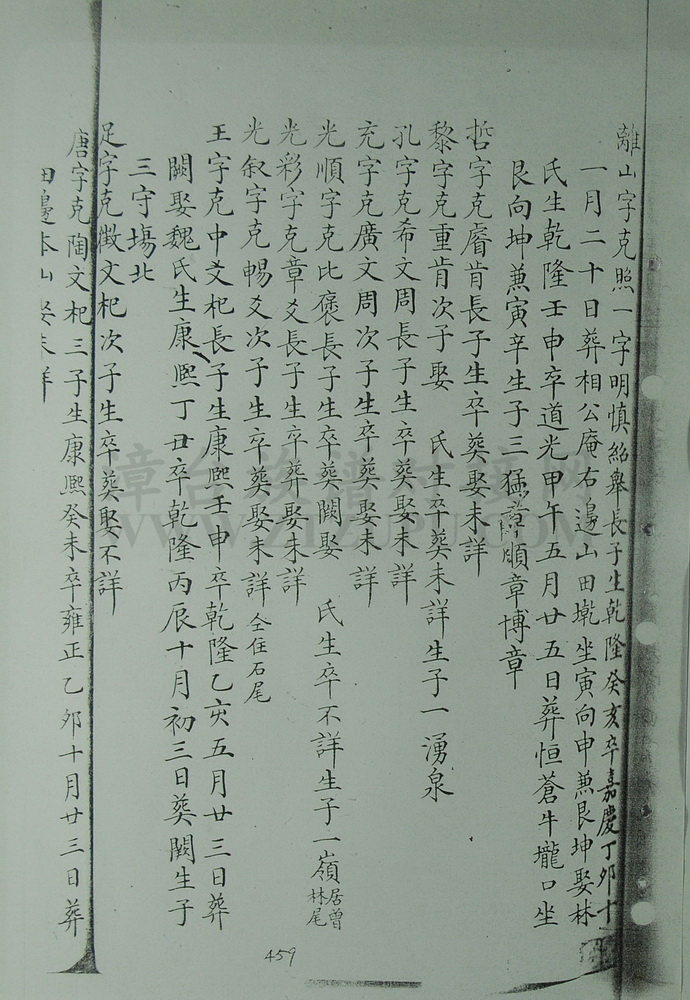 離山字克照一字明慎紹舉長子生乾隆癸亥卒嘉慶丁夘十
一月二十日葬相公庵右邊山田墘坐寅向申兼艮坤娶林
氏生乾隆壬申卒道光甲午五月廿五日葬恒蒼牛壠口坐
艮向坤兼寅辛生子三猛章順章博章
哲字克睿肯長子生卒葬娶未詳
黎字克重肯次子娶　氏生卒葬未詳生子一湧泉
孔字克希文周長子生卒葬娶未詳
充字克廣文周次子生卒葬娶未詳
光順字克比褒長子生卒葬闕娶　氏生卒不詳生子一嶺居曾林尾
光彩字克章爻長子生卒葬娶未詳
光叙字克暢爻次子生卒葬娶未詳仝住石尾
王字克中爻杞長子生康熙壬申卒乾隆乙亥五月廿三日葬
闕娶魏氏生康熙丁丑卒乾隆丙辰十月初三日葬闕生子
三守塲北
足字克徵文杞次子生卒葬娶不詳
唐字克陶文杞三子生康熙癸未卒雍正乙夘十月廿三日葬
田邊本山娶未詳
459
漳台族譜對接網
WWW.ZTZUPU.COM